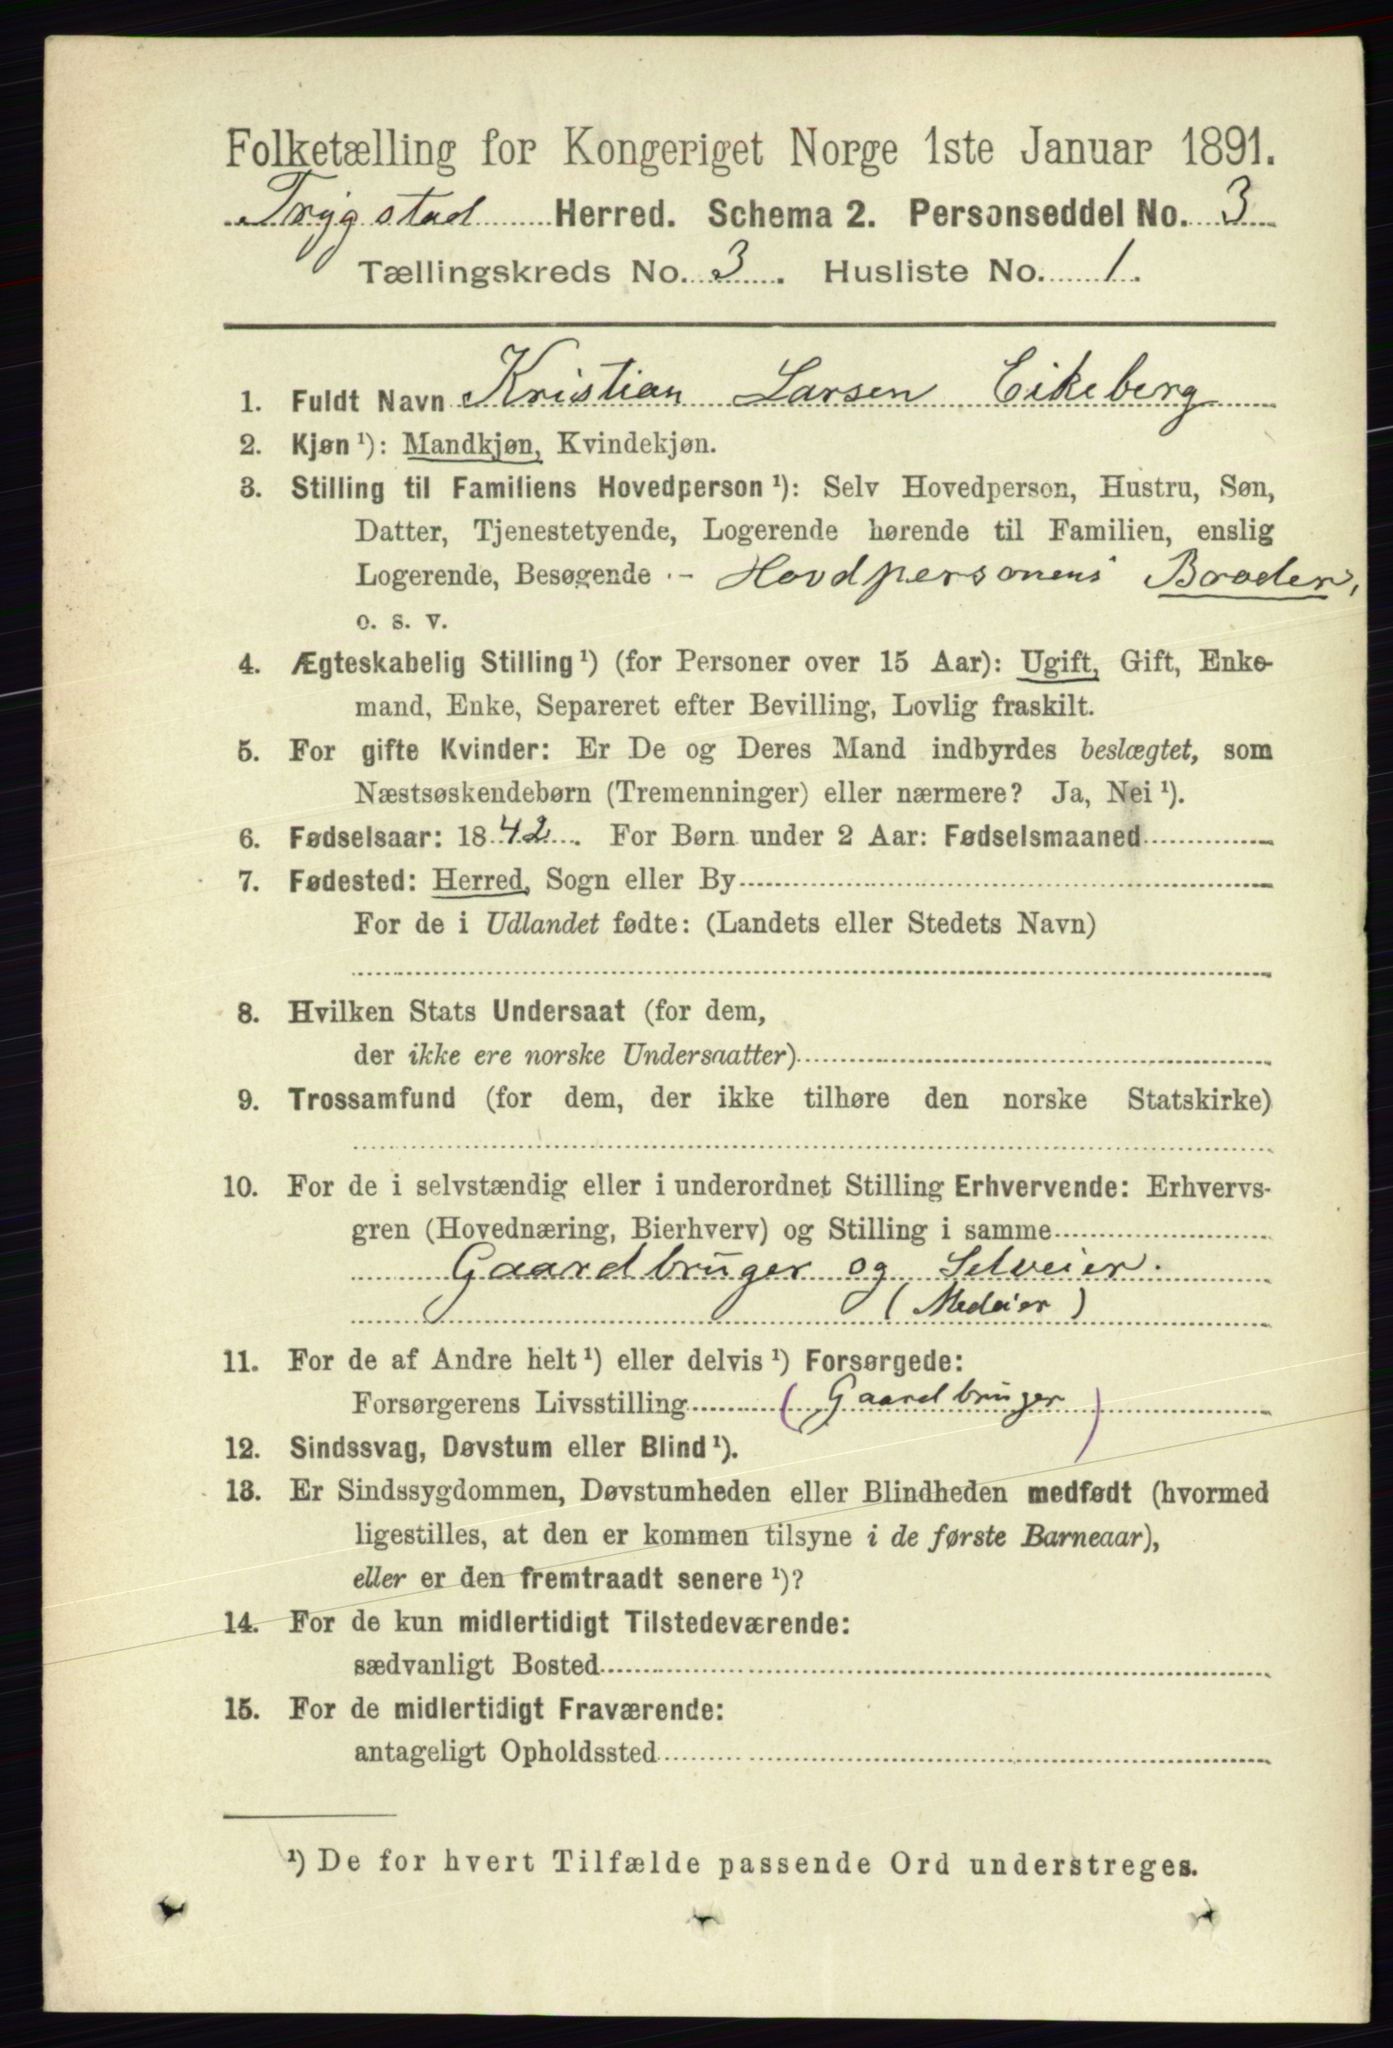 Folketælling for Kongeriget Norge 1ste Januar 1891.
Trygstad Herred. Schema 2. Personseddel No. 3
Tællingskreds No. 3. Husliste No. 1.
1. Fuldt Navn Kristian Larsen Eikeberg
2. Kjøn ¹): Mandkjøn, Kvindekjøn.
3. Stilling til Familiens Hovedperson ¹): Selv Hovedperson, Hustru, Søn,
Datter, Tjenestetyende, Logerende hørende til Familien, enslig
Logerende, Besøgende - Hovdpersonens Broder,
o. s. v.
4. Ægteskabelig Stilling ¹) (for Personer over 15 Aar): Ugift, Gift, Enke-
mand, Enke, Separeret efter Bevilling, Lovlig fraskilt.
5. For gifte Kvinder: Er De og Deres Mand indbyrdes beslægtet, som
Næstsøskendebørn (Tremenninger) eller nærmere? Ja, Nei ¹).
6. Fødselsaar: 1842. For Børn under 2 Aar: Fødselsmaaned
7. Fødested: Herred, Sogn eller By
For de i Udlandet fødte: (Landets eller Stedets Navn)
8. Hvilken Stats Undersaat (for dem,
der ikke ere norske Undersaatter)
9. Trossamfund (for dem, der ikke tilhøre den norske Statskirke)
10. For de i selvstændig eller i underordnet Stilling Erhvervende: Erhvervs-
gren (Hovednæring, Bierhverv) og Stilling i samme
Gaardbruger og Selveier.
(Medeier)
11. For de af Andre helt ¹) eller delvis ¹) Forsørgede:
Forsørgerens Livsstilling (Gaardbruger)
12. Sindssvag, Døvstum eller Blind ¹).
13. Er Sindssygdommen, Døvstumheden eller Blindheden medfødt (hvormed
ligestilles, at den er kommen tilsyne i de første Barneaar),
eller er den fremtraadt senere ¹)?
14. For de kun midlertidigt Tilstedeværende:
sædvanligt Bosted
15. For de midlertidigt Fraværende:
antageligt Opholdssted
¹) De for hvert Tilfælde passende Ord understreges.